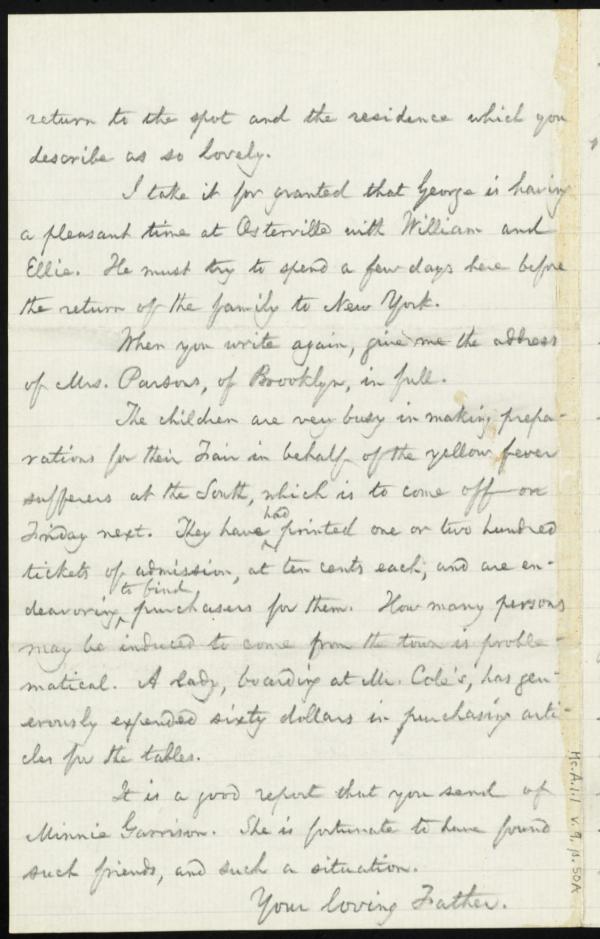 return to the spot and the residence which you
describe as so lovely.
I take it for granted that George is having
a pleasant time at Osterville with William and
Ellie. He must try to spend a few days here before
the return of the family to New York.
When you write again, give me the address
of Mrs. Parsons, of Brooklyn, in full.
The children are very busy in making prepa-
rations for their Fair in behalf of the yellow fever
sufferers at the South, which is to come off on
Friday next. They have had printed one or two hundred
tickets of admission, at ten cents each; and are en-
deavoring to find purchasers for them. How many persons
may be induced to come from the town is proble-
matical. A lady, boarding at Mr. Cole's, has gen-
erously expended sixty dollars in purchasing arti-
cles for the tables.
It is a good report that you send of
Minnie Garrison. She is fortunate to have found
such friends, and such a situation.
Your loving Father.
Ms.A.1.1 v.9, p.50A